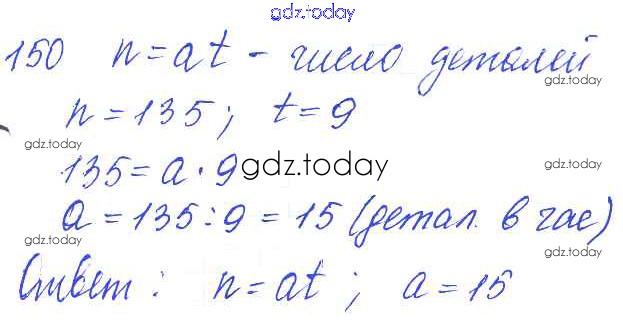 gdz.today
150 n = at - число деталей
gdz.today
n = 135; t = 9
gdz.today
135 = a · 9
gdz.today
gdz.today
a = 135 : 9 = 15 (детал. в час)
gdz.today
gdz.today
Ответ: n = at; a = 15